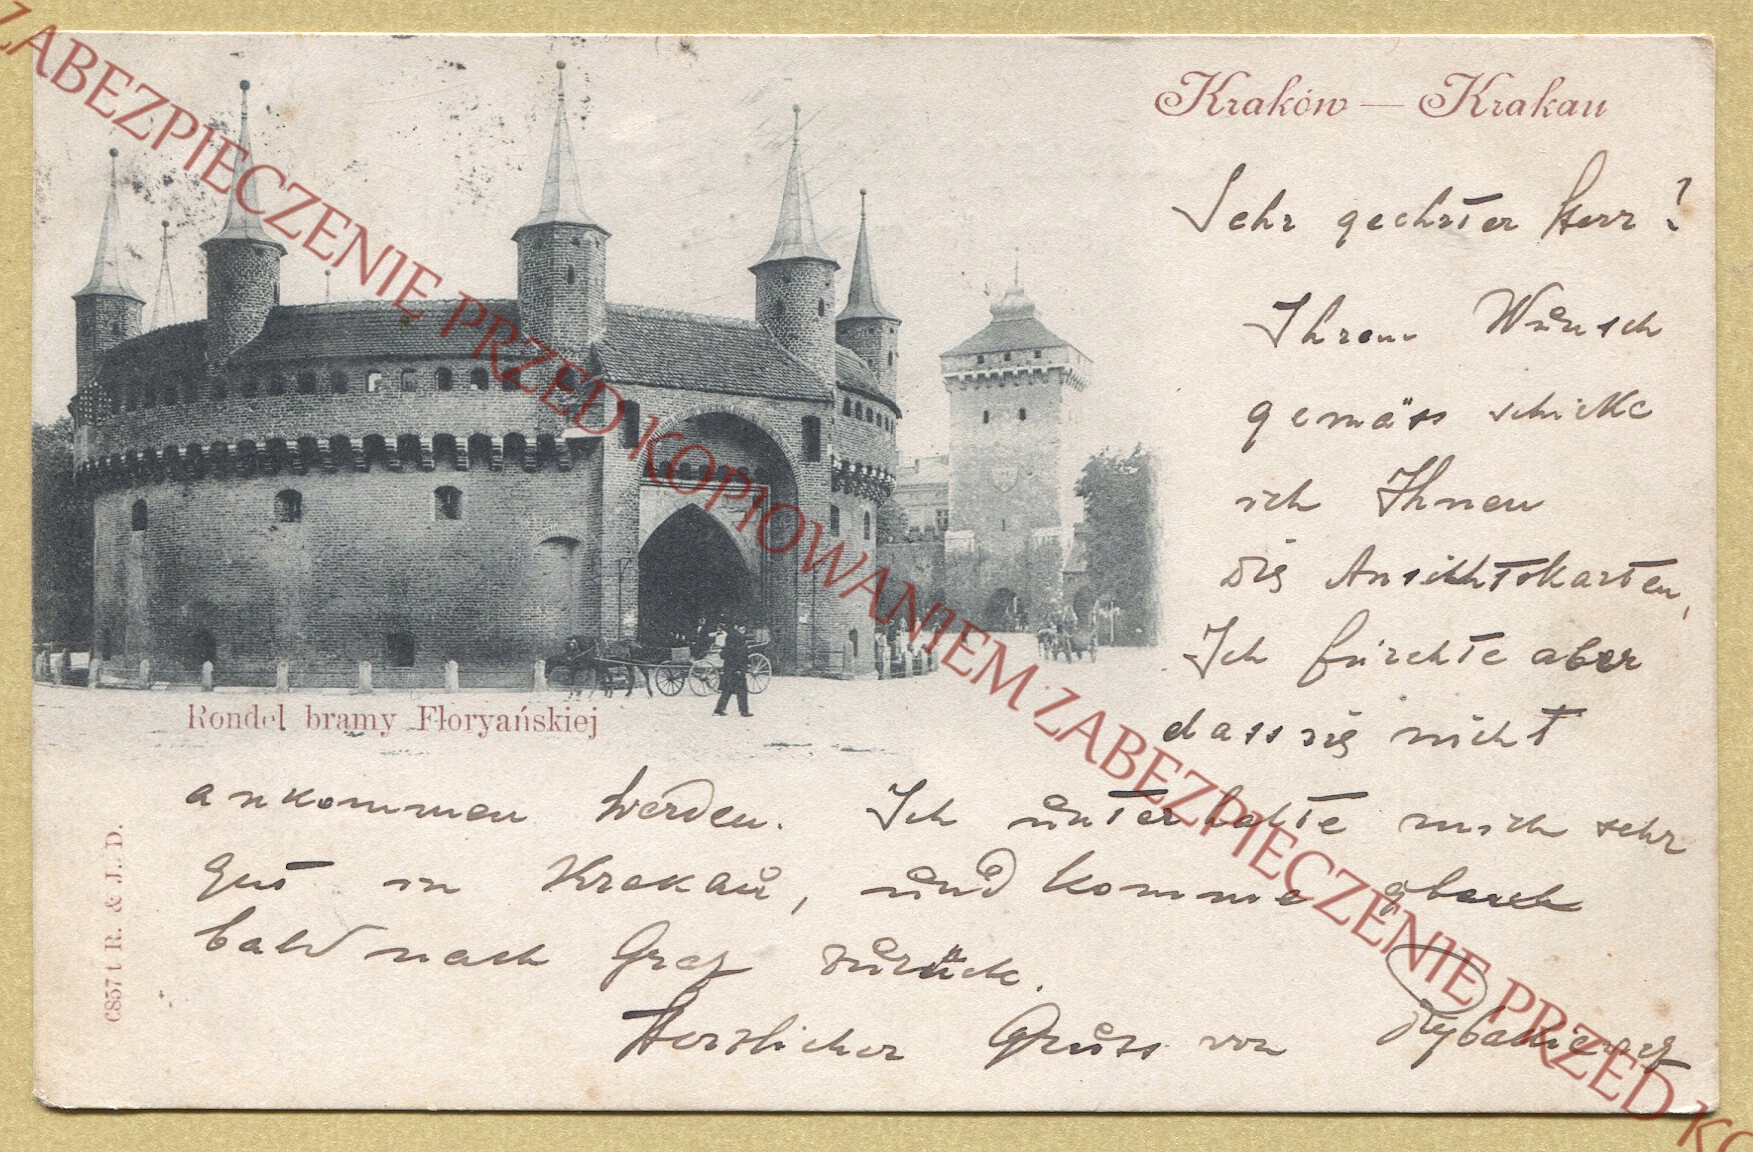 Kraków — Krakau
Sehr geehrter Herr!
Ihrem Wunsch
gemäss schicke
ich Ihnen
die Ansichtskarten,
Ich fürchte aber
dass sie nicht
ankommen werden. Ich unterhalte mich sehr
gut in Krakau, und komme
bald nach Graz zurück.
Herzlicher Gruss von
Rondel bramy Floryańskiej
C857t R. & J. D.
ZABEZPIECZENIE PRZED KOPIOWANIEM ZABEZPIECZENIE PRZED KO